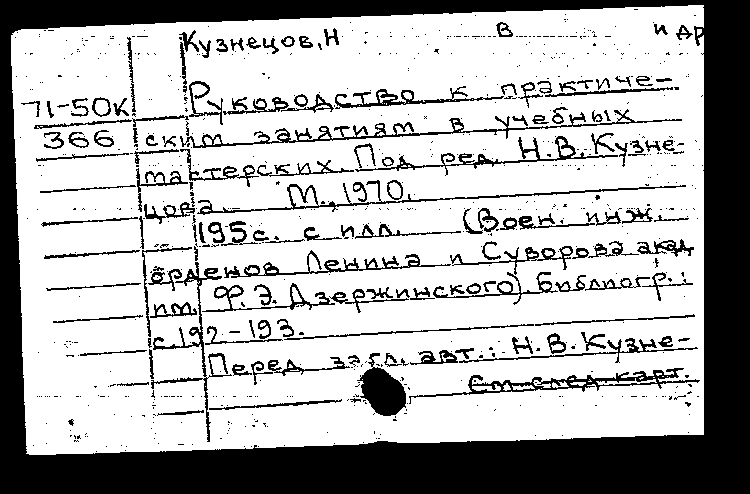 Кузнецов, Н В и др
71-50К Руководство к практиче-
366 ским занятиям в учебных
мастерских. Под ред. Н.В. Кузне-
цова. М., 1970.
195с. с илл. (Воен. инж.
орденов Ленина и Суворова акад
им. Ф.Э. Дзержинского). Библиогр.:
с. 192-193.
Перед загл. авт.: Н.В. Кузне-
См след. карт.